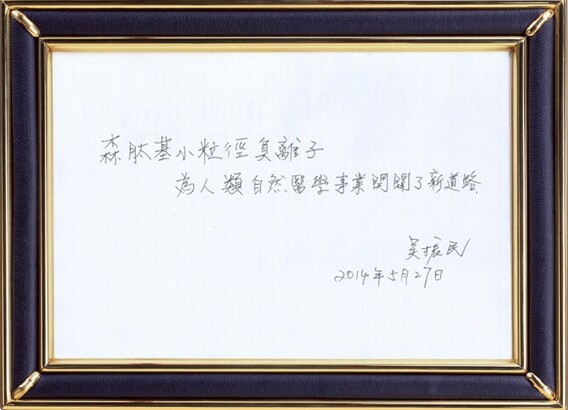 森肽基小粒徑負離子
為人類自然醫學事業開闢了新道路
吴振民
2014年5月27日